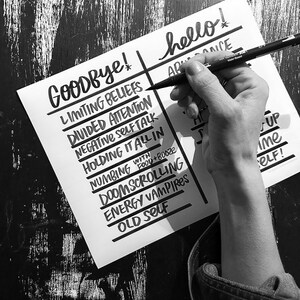 GOODBYE!
LIMITING BELIEFS
DIVIDED ATTENTION
NEGATIVE SELF TALK
HOLDING IT ALL IN
NUMBING WITH FOOD + BOOZE
DOOMSCROLLING
ENERGY VAMPIRES
OLD SELF
hello!
ABUNDANCE
UP